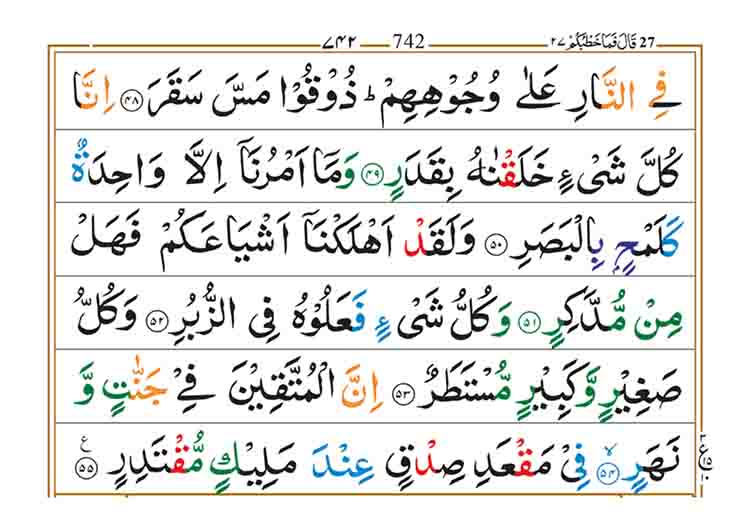 قَالَ فَمَا خَطْبُكُمْ ٢٧ 27 742 ٧٤٢
فِي النَّارِ عَلٰى وُجُوْهِهِمْ ؕ ذُوْقُوْا مَسَّ سَقَرَ ﴿۴۸﴾ اِنَّا
كُلَّ شَىْءٍ خَلَقْنٰهُ بِقَدَرٍ ﴿۴۹﴾ وَمَاۤ اَمْرُنَاۤ اِلَّا وَاحِدَةٌ
كَلَمْحٍۭ بِالْبَصَرِ ﴿۵۰﴾ وَلَقَدْ اَهْلَكْنَاۤ اَشْيَاعَكُمْ فَهَلْ
مِنْ مُّدَّكِرٍ ﴿۵۱﴾ وَكُلُّ شَىْءٍ فَعَلُوْهُ فِى الزُّبُرِ ﴿۵۲﴾ وَكُلُّ
صَغِيْرٍ وَّكَبِيْرٍ مُّسْتَطَرٌ ﴿۵۳﴾ اِنَّ الْمُتَّقِيْنَ فِىْ جَنّٰتٍ وَّ
نَهَرٍ ۙ﴿۵۴﴾ فِىْ مَقْعَدِ صِدْقٍ عِنْدَ مَلِيْكٍ مُّقْتَدِرٍ ﴿۵۵﴾ ع